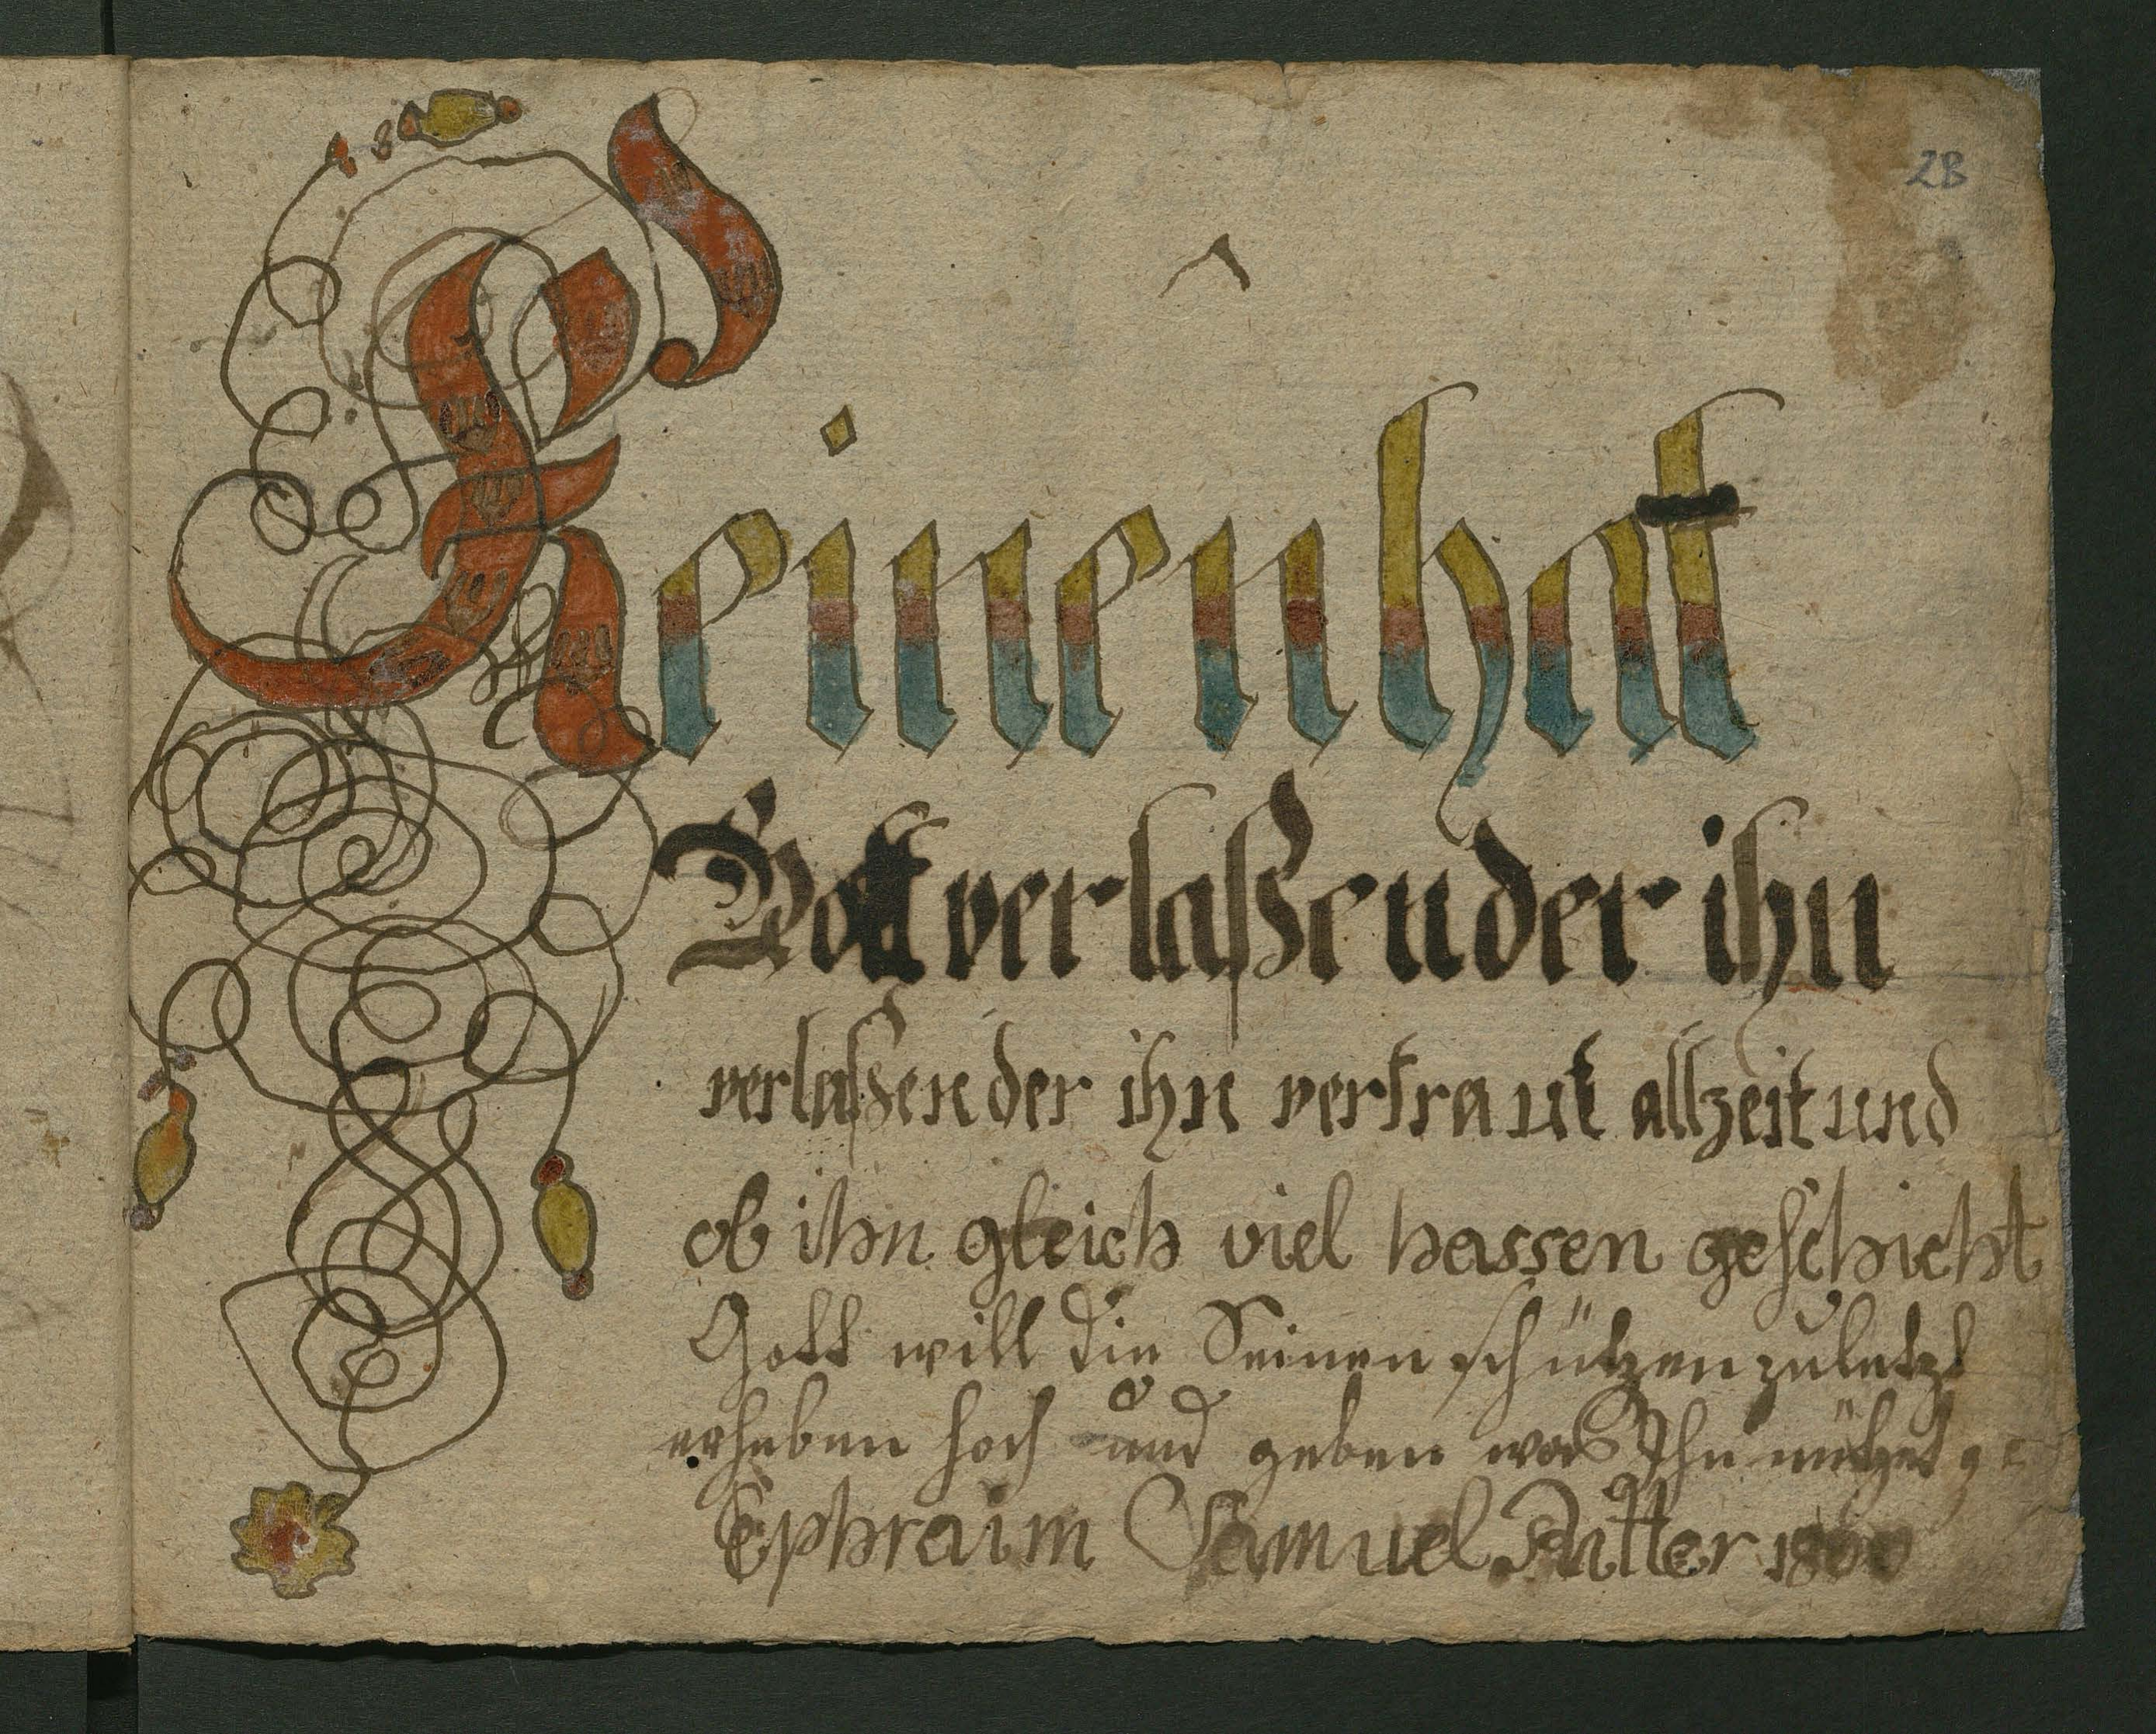 2B
Keinen hat
Gott verlaßen der ihn
verlaßen der ihn vertraut allzeit und
ob ihn gleich viel hassen geschicht
Gott will die Seinen schützen zuletzt
erheben hoch und geben was Ihn nützet ge
Ephraim Samuel Ritter 1800